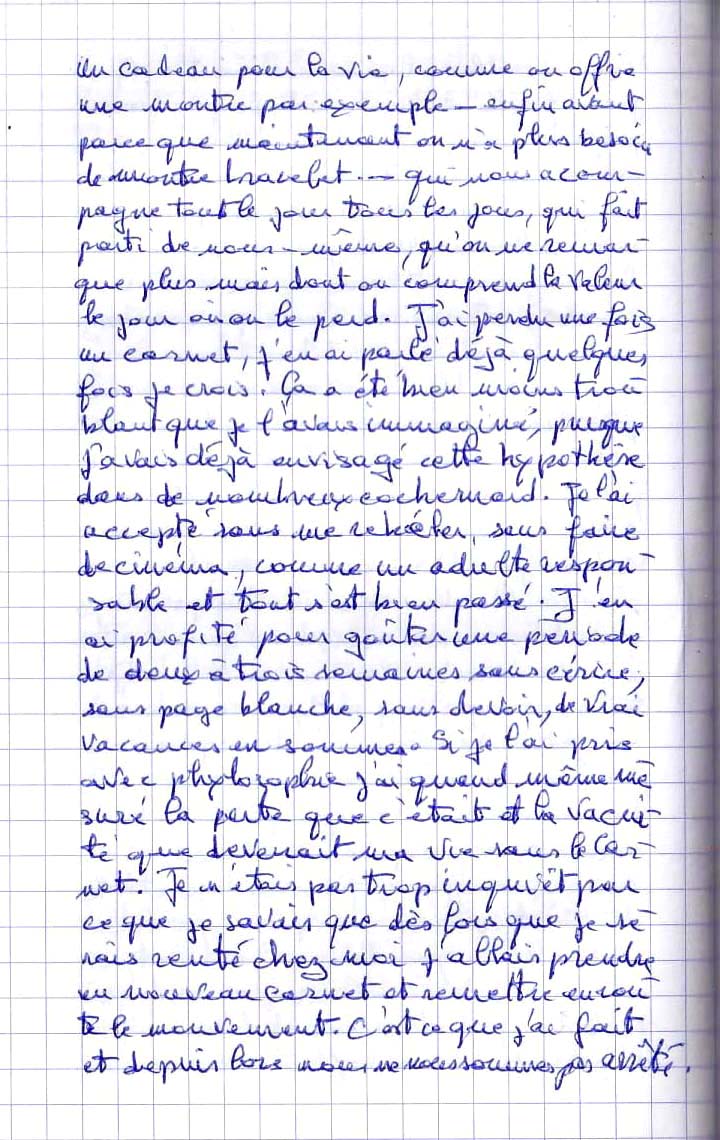 un cadeau pour la vie, comme on offre
une montre par exemple – enfin avant
parce que maintenant on n'a plus besoin
de montre bracelet – qui nous acom-
pagne tout le jour tous les jous, qui fait
parti de nous-même, qu'on ne remar-
que plus mais dont on comprend la valeur
le jour où on le perd. J'ai perdu une fois
un carnet, j'en ai parlé déjà quelques
fois je crois. Ça a été bien moins trou
blant que je l'avais immaginé, puisque
j'avais déjà envisagé cette hypothèse
dans de nombreux cochemard. Je l'ai
accepté sans me rebéler, sans faire
de cinéma, comme un adulte respon-
sable et tout s'est bien passé. J'en
ai profité pour goûter une période
de deux à trois semaines sans écrire,
sans page blanche, sans devoir, de vrai
vacances en somme. Si je l'ai pris
avec phylosophie j'ai quand même me
suré la perte que c'était et la vacui-
té que devenait ma vie sans le Car-
net. Je n'étais pas trop inquiêt par
ce que je savais que dès lors que je se-
rais rentré chez moi j'allais prendre
un nouveau carnet et remettre en rou
te le mouvement. C'est ce que j'ai fait
et depuis lors nous ne nous sommes pas arrêté.